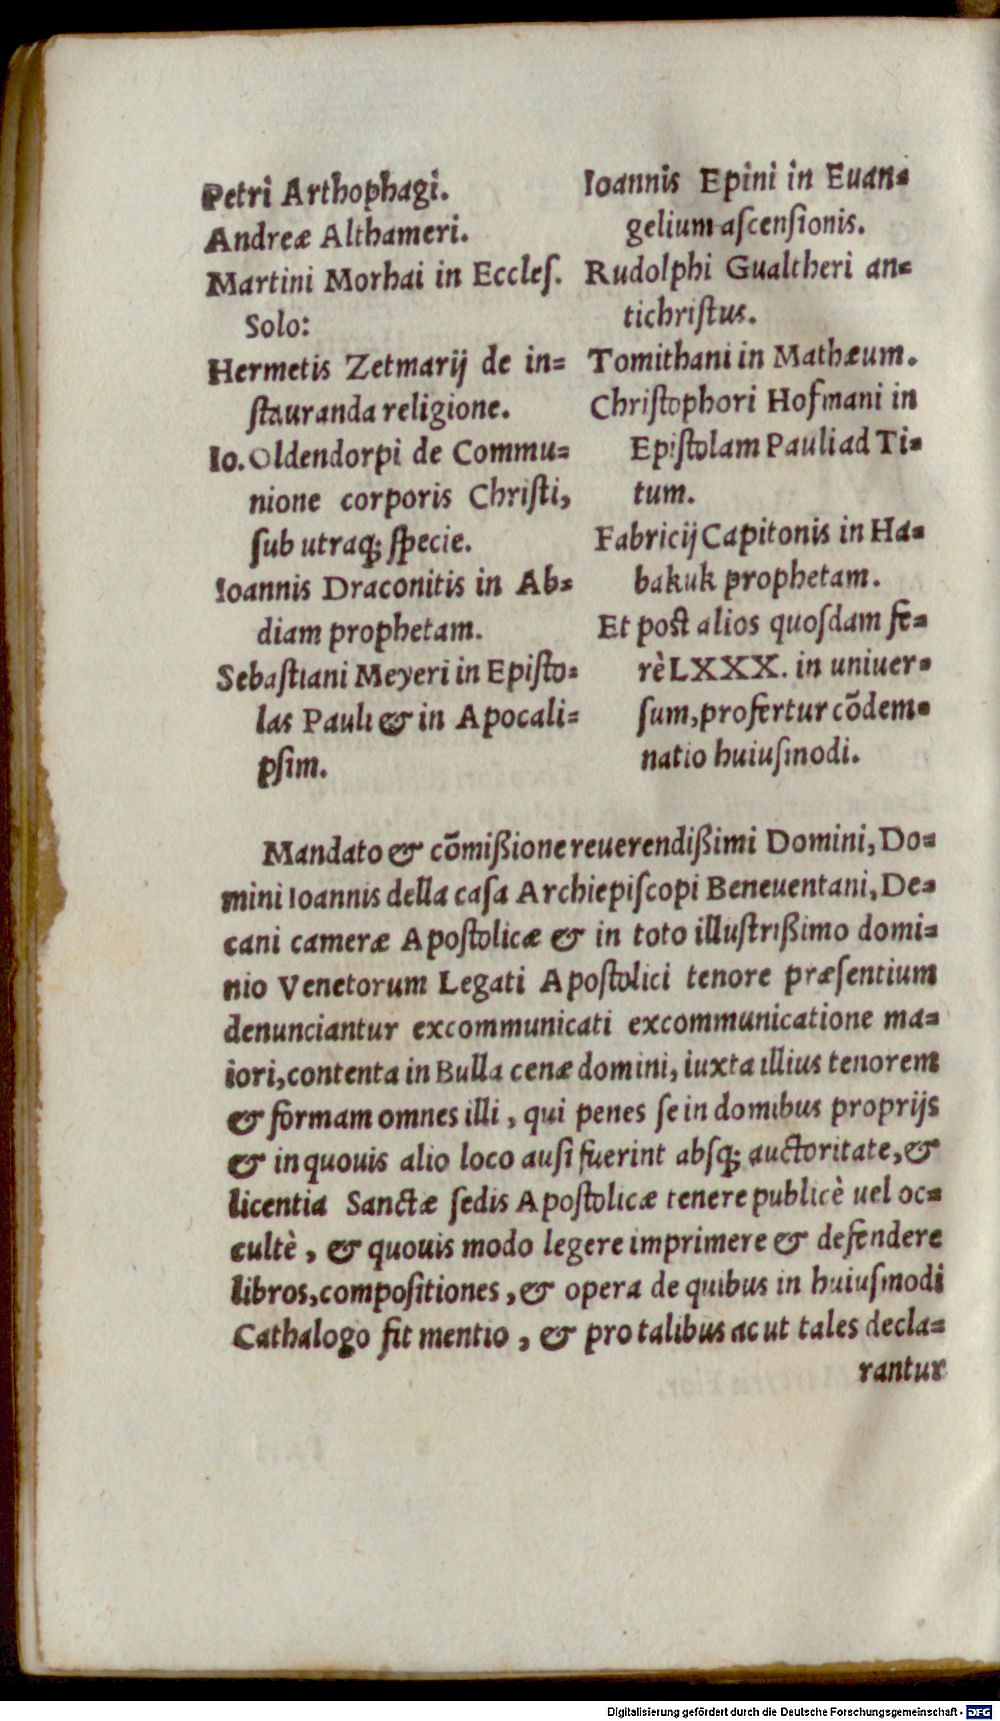 Petri Arthophagi.
Andreæ Althameri.
Martini Morhai in Eccleſ.
Solo:
Hermetis Zetmarij de in=
ſtauranda religione.
Io. Oldendorpi de Commu=
nione corporis Chriſti,
ſub utraq; ſpecie.
Ioannis Draconitis in Ab=
diam prophetam.
Sebaſtiani Meyeri in Epiſto=
las Pauli & in Apocali=
pſim.
Ioannis Epini in Euan=
gelium aſcenſionis.
Rudolphi Gualtheri an=
tichriſtus.
Tomithani in Mathæum.
Chriſtophori Hofmani in
Epiſtolam Pauli ad Ti=
tum.
Fabricij Capitonis in Ha=
bakuk prophetam.
Et poſt alios quoſdam fe=
rè LXXX. in uniuer=
ſum, profertur cõdem=
natio huiuſmodi.
Mandato & cõmißione reuerendißimi Domini, Do=
mini Ioannis della caſa Archiepiſcopi Beneuentani, De=
cani cameræ Apoſtolicæ & in toto illuſtrißimo domi=
nio Venetorum Legati Apoſtolici tenore præſentium
denunciantur excommunicati excommunicatione ma=
iori, contenta in Bulla cenæ domini, iuxta illius tenorem
& formam omnes illi, qui penes ſe in domibus proprijs
& in quouis alio loco auſi fuerint abſq; auctoritate, &
licentia Sanctæ ſedis Apoſtolicæ tenere publicè uel oc=
cultè, & quouis modo legere imprimere & defendere
libros, compoſitiones, & opera de quibus in huiuſmodi
Cathalogo fit mentio, & pro talibus ac ut tales decla=
rantur
Digitalisierung gefördert durch die Deutsche Forschungsgemeinschaft - DFG